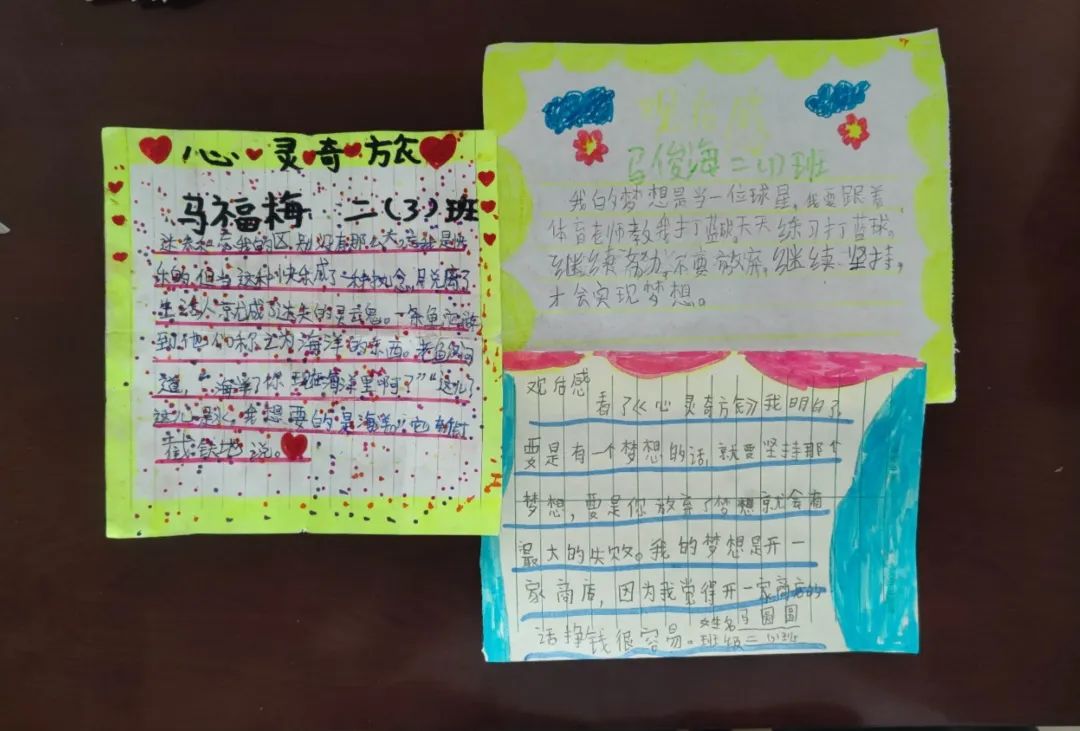 心灵奇旅
马福梅 二(3)班
迷失和忘我的区别没有那么大。忘我是快
乐的,但当这种快乐成了一种执念,且脱离了
生活人就成了迷失的灵魂。一条鱼它游
到他们称之为海洋的东西。老鱼
道,“海洋?你现在海洋里啊?”“这儿?
这儿是水,我想要的是海洋。”它斩钉
截铁地说。
观后感
马俊海二(1)班
我的梦想是当一位球星,我要跟着
体育老师教我打篮球。天天练习打篮球。
继续努力,不要放弃,继续坚持,
才会实现梦想。
观后感
看了《心灵奇旅》我明白了,
要是有一个梦想的话,就要坚持那个
梦想,要是你放弃了梦想就会有
最大的失败。我的梦想是开一
家商店,因为我觉得开一家商店的
话挣钱很容易。
姓名马圆圆
班级二